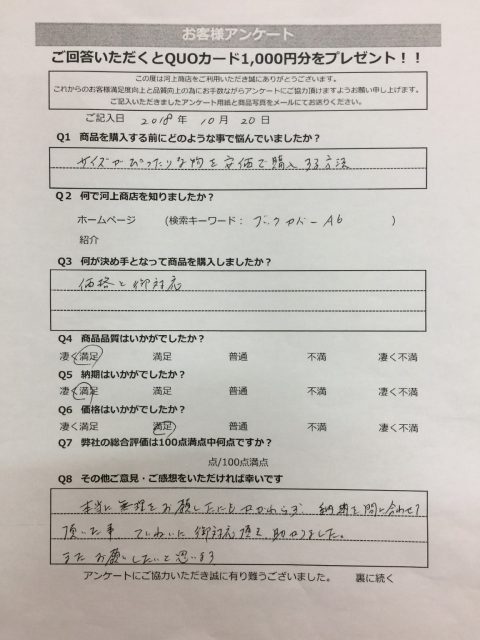 お客様アンケート
ご回答いただくとQUOカード1,000円分をプレゼント！！
この度は河上商店をご利用いただき誠にありがとうございます。
これからのお客様満足度向上と品質向上の為にお手数ながらアンケートにご協力頂けますようお願い申し上げます。
ご記入いただきましたアンケート用紙と商品写真をメールにてお送りください。
ご記入日 2018年 10月 20日
Q1 商品を購入する前にどのような事で悩んでいましたか？
サイズがぴったりな物を安価で購入する方法
Q2 何で河上商店を知りましたか？
ホームページ (検索キーワード： ブックカバーA6 )
紹介
Q3 何が決め手となって商品を購入しましたか？
価格と御対応
Q4 商品品質はいかがでしたか？
凄く満足 満足 普通 不満 凄く不満
Q5 納期はいかがでしたか？
凄く満足 満足 普通 不満 凄く不満
Q6 価格はいかがでしたか？
凄く満足 満足 普通 不満 凄く不満
Q7 弊社の総合評価は100点満点中何点ですか？
点/100点満点
Q8 その他ご意見・ご感想をいただければ幸いです
本当に無理をお願いしたにもかかわらず、納期を間に合わせて
頂いた事 ていねいに御対応頂き助かりました。
またお願いしたいと思います
アンケートにご協力いただき誠に有り難うございました。 裏に続く